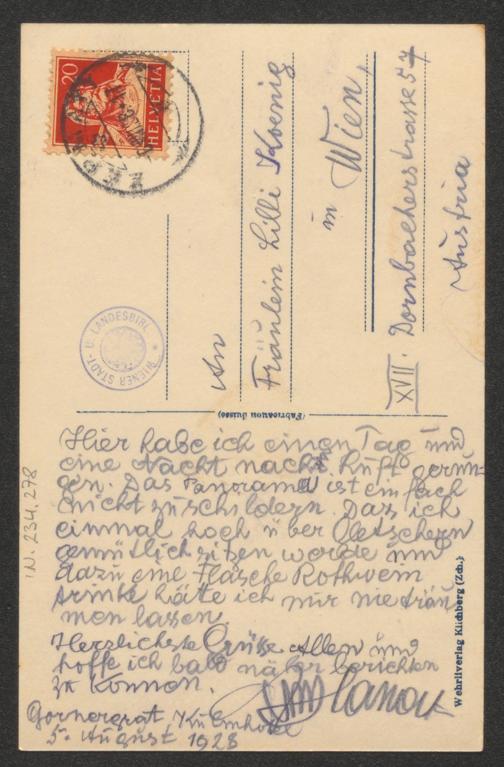 20
HELVETIA
WIENER STADT- U. LANDESBIBL.
An
Fräulein Lilli Koenig
in Wien,
XVII. Dornbacherstrasse 57
Austria
(Fabrication Suisse)
Hier habe ich einen Tag und
eine Nacht nach Luft gerun-
gen. Das Panorama ist einfach
nicht zu schildern. Das ich
einmal hoch über Gletschern
gemütlich sitzen werde und
dazu eine Flasche Rothwein
trinke häte ich mir nie träu
men lasen.
Herzlichste Grüsse Allen und
hoffe ich bald näher berichten
zu können.
Gornergrat Kulmhotel
5. August 1928
Wehrliverlag Kilchberg (Zch.)
IN. 234.278